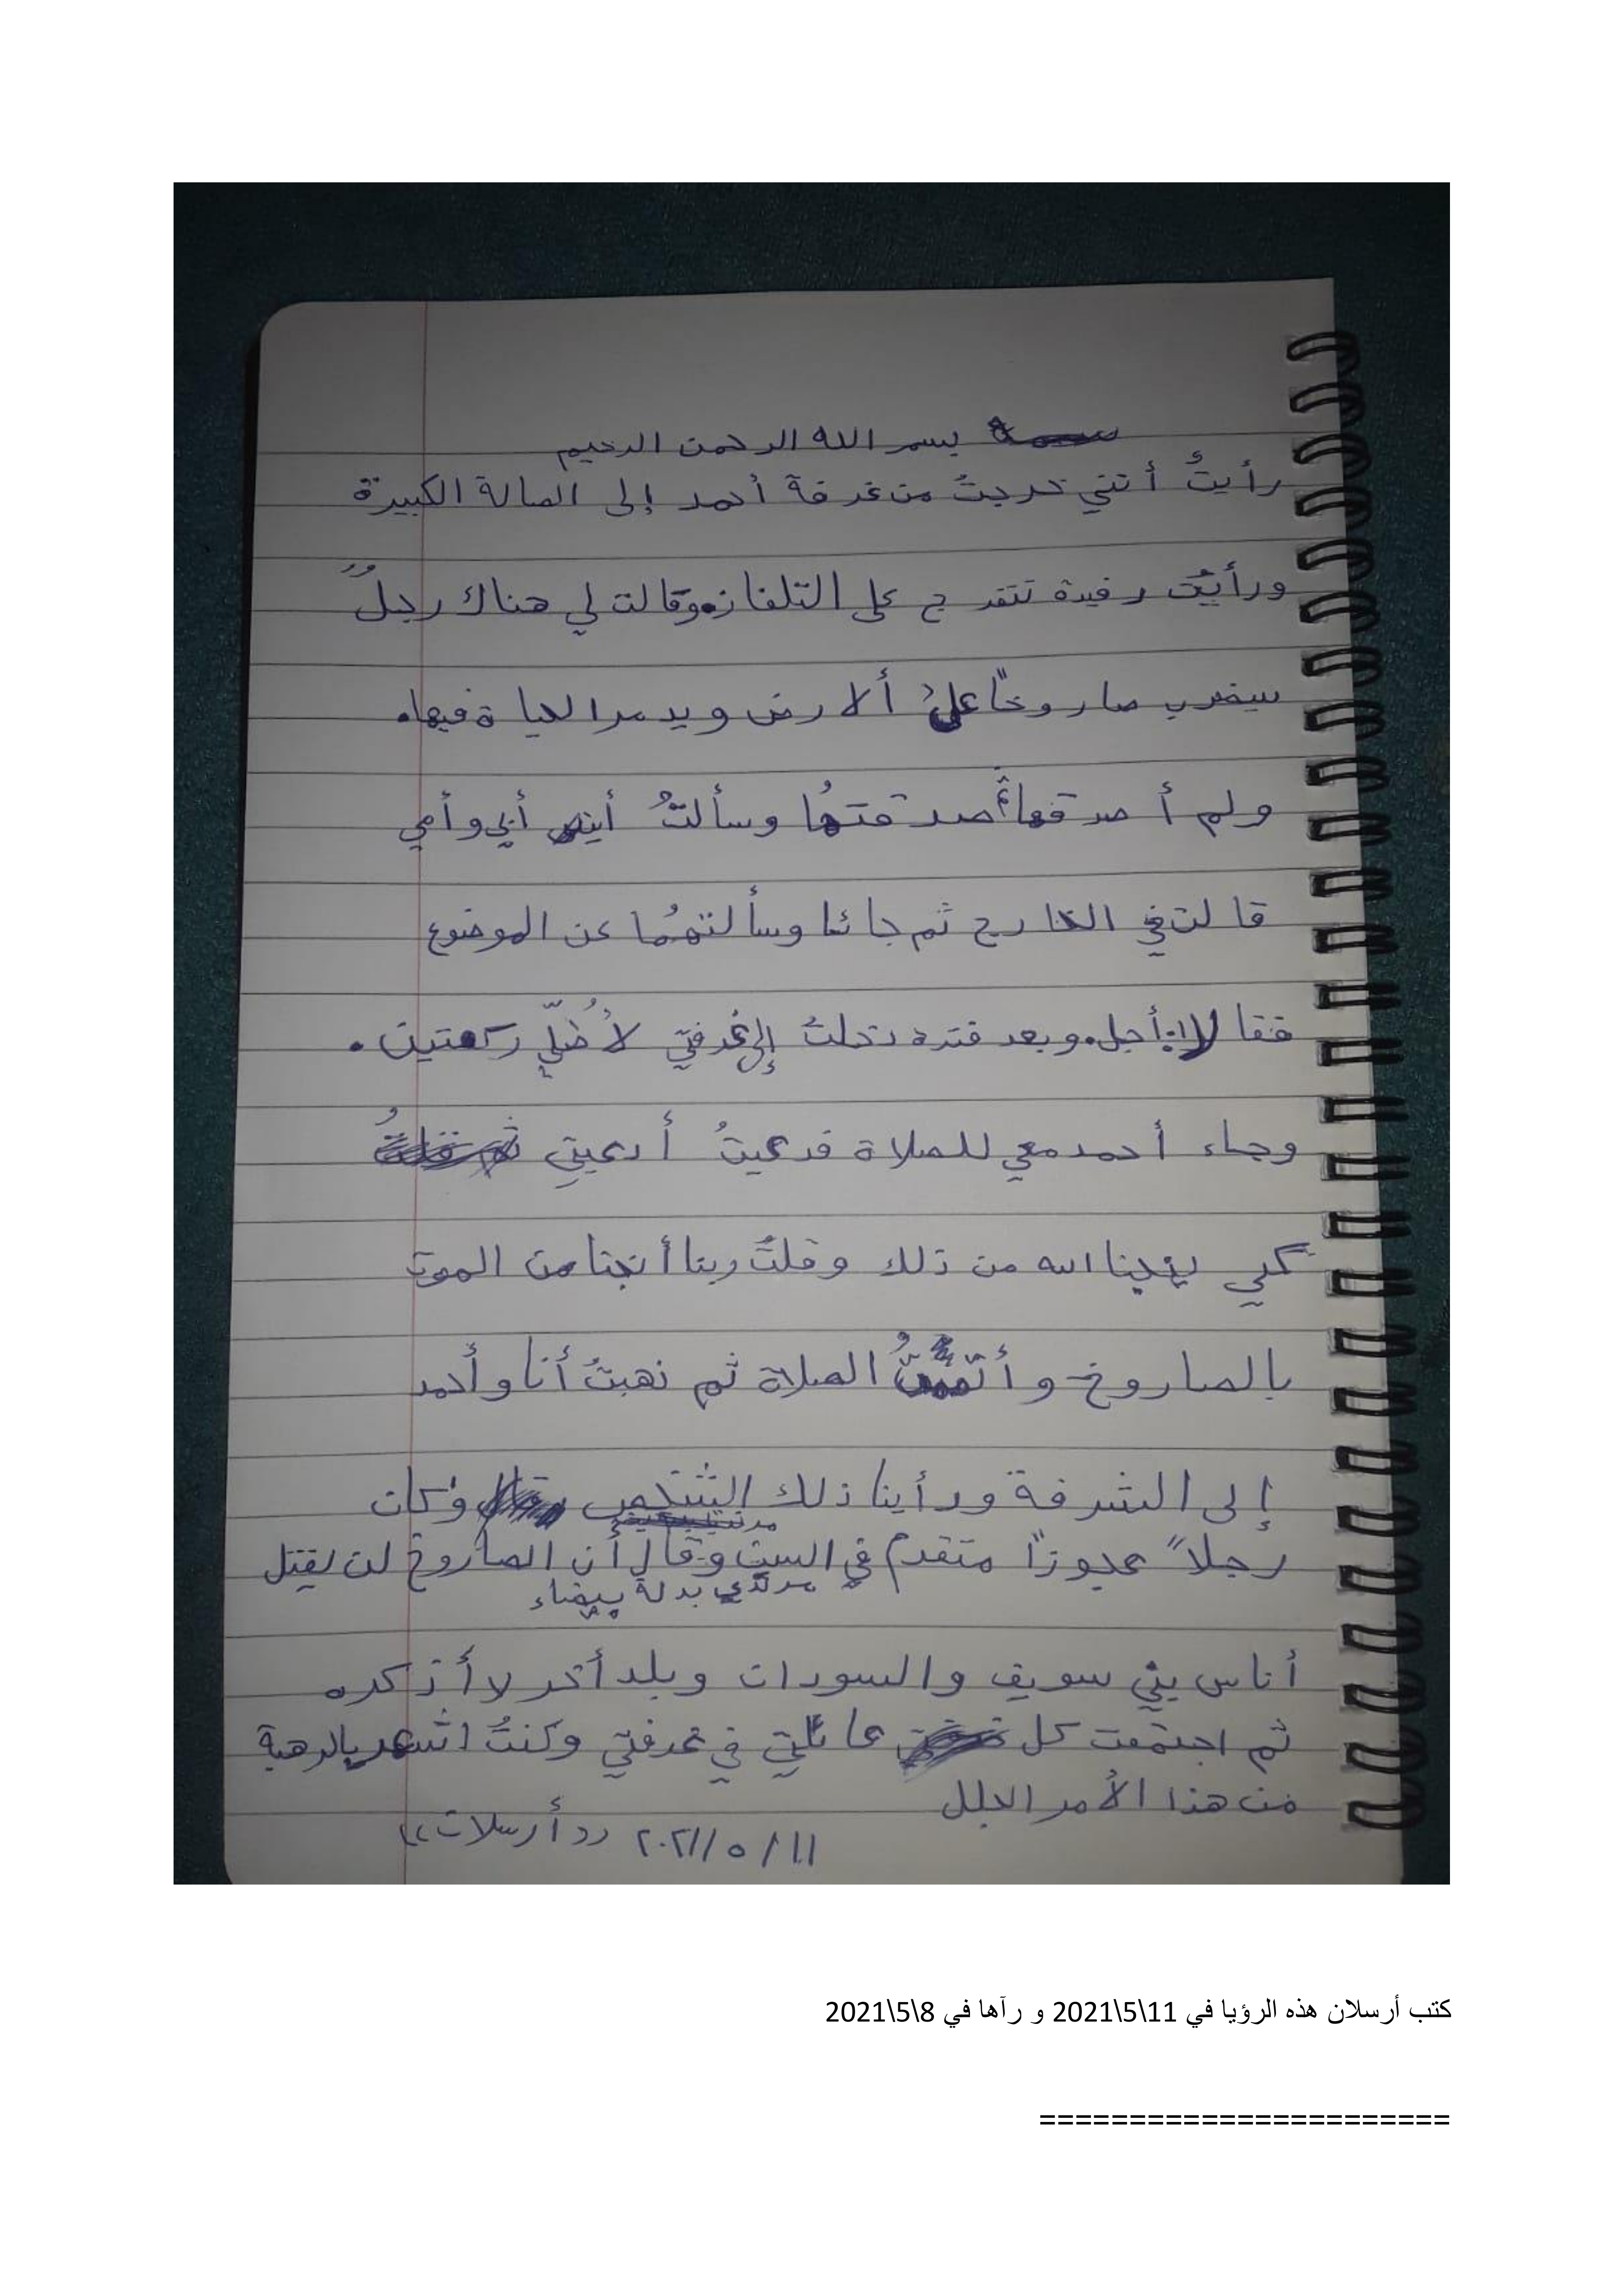 بسم الله الرحمن الرحيم
رأيتُ أنني خرجتُ من غرفة أحمد إلى الصالة الكبيرة
ورأيتُ رفيدة تتفرج على التلفاز. وقالت لي هناك رجلٌ
سيضرب صاروخاً على ألارض ويدمر الحياة فيها.
ولم أصدقها ثم صدقتها وسألتُ أين أبي وأمي
قالت في الخارج ثم جائا وسألتهُما عن الموضوع
فقالا: أجل. وبعد فترة دخلتُ إلى غرفتي لأُصلّي ركعتين.
وجاء أحمد معي للصلاة فدعيتُ أدعيتي
كي ينجينا الله من ذلك وقلتُ ربنا أنجنا من الموت
بالصاروخ وأتممتُ الصلاة ثم ذهبتُ أنا وأحمد
إلى الشرفة ورأينا ذلك الشخص وكان
رجلاً عجوزاً متقدم في السن وقال أن الصاروخ لن يقتل
مرتدي بدلة بيضاء
أناس بني سويف والسودان وبلد أخر لا أذكره
ثم اجتمعت كل عائلتي في غرفتي وكنتُ اشعر بالرهبة
من هذا الأمر الجلل
١١/٥/٢٠٢١ ((أرسلان))
كتب أرسلان هذه الرؤيا في 11\5\2021 و رآها في 8\5\2021
=======================